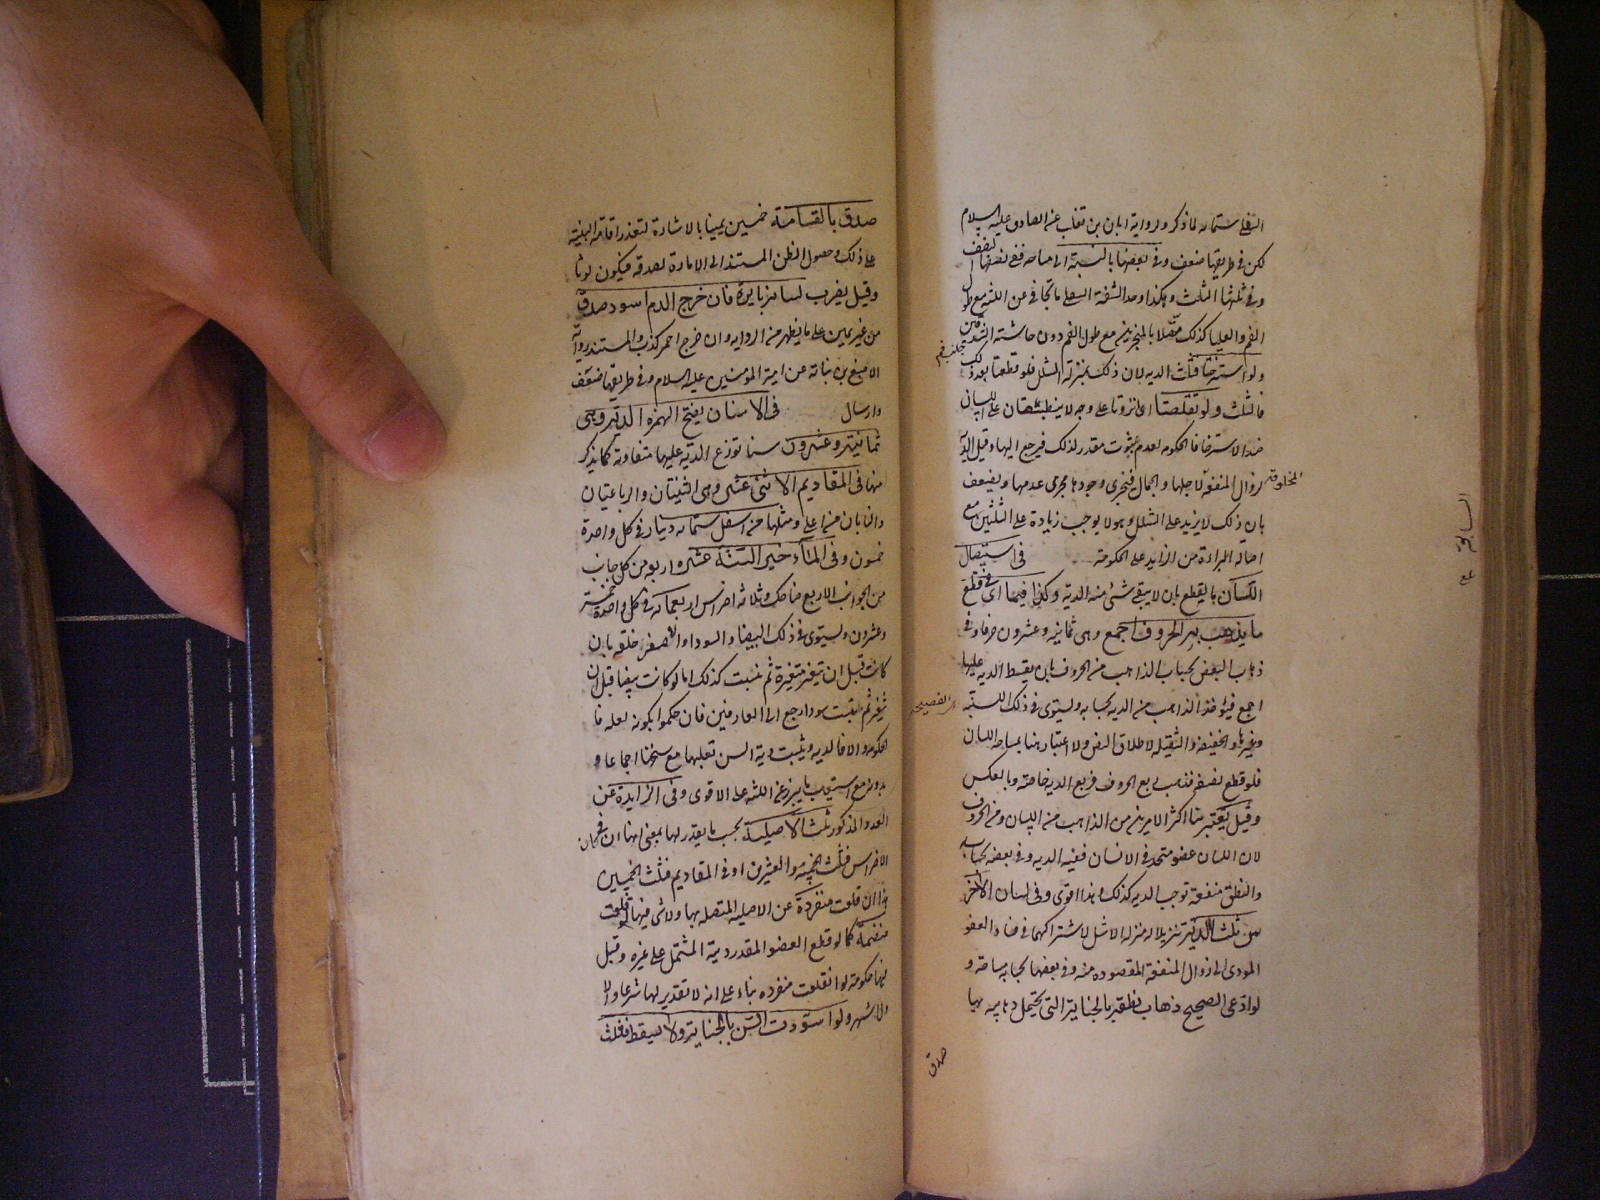 السفلى ستمائة لما ذكر ولرواية ابان بن تغلب عن الصادق عليه السلام
لكن في طريقها ضعف وفي بعضها بالنسبة الى مساحه ففي نصفها النصف
وفي ثلثها الثلث وهكذا وحد الشفة السفلى ما تجافى عن اللثة مع طول
الفم والعليا كذلك متصلا بالمنخرين مع طول الفم دون حاشية الشدقين
ولو استرختا فثلثا الدية لان ذلك بمنزلة الشلل فلو قطعتا بعد ذلك
فالثلث ولو تقلصتا اي انزوتا على وجه لا ينطبقان على الاسنان
ضد الاسترخا فالحكومة لعدم ثبوت مقدر لذلك فيرجع اليها وقيل الدية
لزوال المنفعة المخلوقة لاجلها والجمال فيجري وجودها مجرى عدمها ويضعف
بان ذلك لا يزيد على الشلل وهو لا يوجب زيادة على الثلثين مع
اصالة البراءة من الزايد على الحكومة في استيصال
اللسان بان يقطع بان لا يبقى شئ منه الدية وكذا فيما اي في قطع
ما يذهب به الحروف اجمع وهي ثمانية وعشرون حرفا وفي
ذهاب البعض بحساب الذاهب من الحروف بان يقسط الدية عليها
اجمع فيؤخذ الذاهب من الدية بحسابه ويستوي في ذلك اللسنية
وغيرها والخفيفة والثقيلة لاطلاق النص ولا اعتبار هنا بمساحة اللسان
فلو قطع نصفه فذهب ربع الحروف فربع الدية خاصة وبالعكس
وقيل يعتبر هنا اكثر الامرين من الذاهب من اللسان ومن الحروف
لان اللسان عضو متحد في الانسان ففيه الدية وفي بعضه بحسابه
والنطق منفعة توجب الدية كذلك وهذا اقوى وفي لسان الاخرس
ثلث الدية تنزيلا له منزلة الاشل لاشتراكهما في فساد العضو
المودى الى زوال المنفعة المقصودة منه وفي بعضها بحسابه مساحة و
لو ادعى الصحيح ذهاب نطقه بالجناية التي يحتمل ذهابه بها
صدق
صدق بالقسامة خمسين يمينا بالاشارة لتعذر اقامة البينة
على ذلك وحصول الظن المستند الى الامارة بصدقه فيكون لوثا
وقيل يضرب لسانه بابرة فان خرج الدم اسود صدق
من غير يمين على ما يظهر من الرواية وان خرج احمر كذب والمستند رواية
الاصبغ بن نباتة عن امير المؤمنين عليه السلام وفي طريقها ضعف
وارسال في الاسنان بفتح الهمزة الدية وهي
ثمانية وعشرون سنا توزع الدية عليها متفاوتة كما يذكر
منها في المقاديم الاثنى عشر وهي الثنيتان والرباعيتان
والنابان من اعلى ومثلها من اسفل ستمائة دينار في كل واحدة
خمسون وفي المآخير الستة عشر اربعة من كل جانب
من الجوانب الاربع ضاحك وثلاثة اضراس اربعمائة في كل واحدة خمسة
وعشرون ويستوي في ذلك البيضا والسودا والصفرا خلقة بان
كانت قبل ان تيغر متغيرة ثم نبتت كذلك اما لو كانت بيضا قبل ان
تيغر ثم نبتت سودا رجع الى العارفين فان حكموا بكونه لعلة فا
لحكومة والا فالدية ويثبت دية السن بقلعها مع سنخها اجماعا و
بدونه مع استيعاب ما يبرز عن اللثة على الاقوى وفي الزايدة عن
العدد المذكور ثلث الاصلية بحسب ما يقدر لها بمعنى انها ان كان في
الاضراس فثلث الخمسة والعشرين او في المقاديم فثلث الخمسين
هذا ان قلعت منفردة عن الاصلية المتصلة بها ولا شئ فيها لو قلعت
منضمة كما لو قطع العضو المقدر ديته المشتمل على غيره وقيل
فيها حكومة لو انقلعت منفردة بناء على انه لا تقدير لها شرعا والا
ول اشهر ولو اسودت السن بالجناية ولا تسقط فثلثا